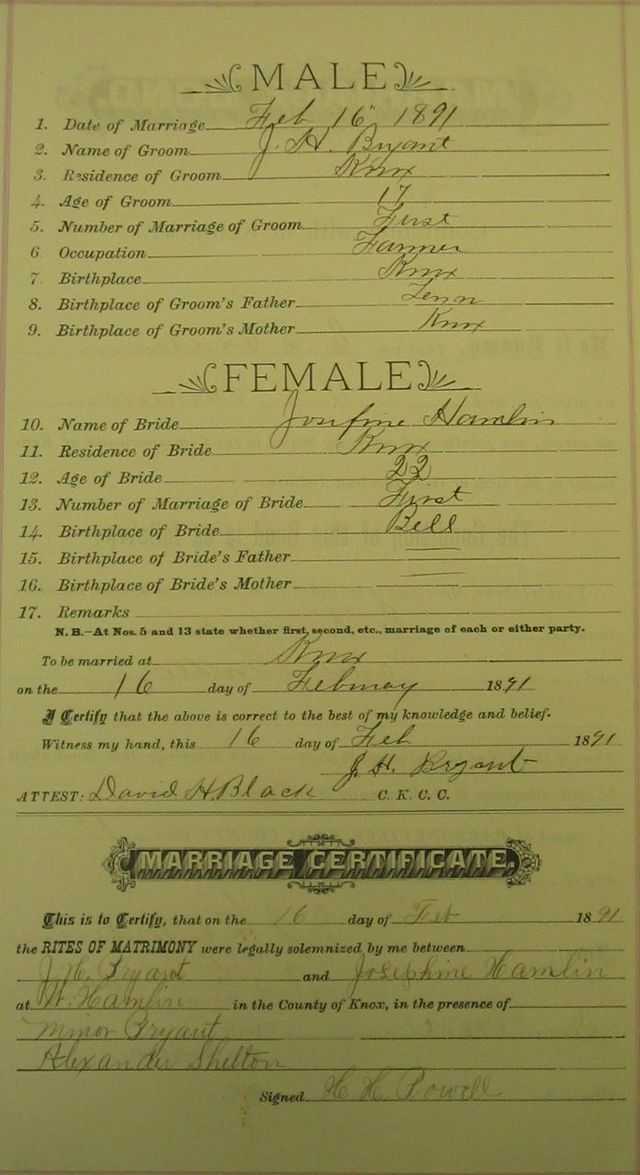 MALE
1. Date of Marriage Feb 16" 1891
2. Name of Groom J. H. Bryant
3. Residence of Groom Knox
4. Age of Groom 17
5. Number of Marriage of Groom First
6 Occupation Farmer
7. Birthplace Knox
8. Birthplace of Groom's Father Tenn
9. Birthplace of Groom's Mother Knox
FEMALE
10. Name of Bride Josefine Hamlin
11. Residence of Bride Knox
12. Age of Bride 22
13. Number of Marriage of Bride First
14. Birthplace of Bride Bell
15. Birthplace of Bride's Father
16. Birthplace of Bride's Mother
17. Remarks
N. B.—At Nos. 5 and 13 state whether first, second, etc., marriage of each or either party.
To be married at Knox
on the 16 day of February 1891
I Certify that the above is correct to the best of my knowledge and belief.
Witness my hand, this 16 day of Feb 1891
J. H. Bryant
ATTEST: David H. Black C. K. C. C.
MARRIAGE CERTIFICATE.
This is to Certify, that on the 16 day of Feb 1891
the RITES OF MATRIMONY were legally solemnized by me between
J. H. Bryant and Josephine Hamlin
at W. Hamlin in the County of Knox, in the presence of
Minor Bryant
Alexander Shelton
Signed H H Powell